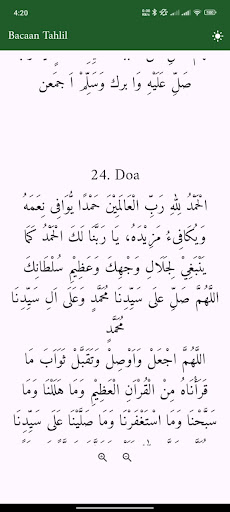 4:20
Bacaan Tahlil
صَلِّ عَلَيْهِ وَا برك وَسَلِّمْ اَ جمَعن
24. Doa
الْحَمْدُ لِلهِ رَبِّ الْعَالَمِيْنَ حَمْدًا يُّوَافِى نِعَمَهُ
وَيُكَافِىءُ مَزِيْدَهُ، يَا رَبَّنَا لَكَ الْحَمْدُ كَمَا
يَنْبَغِيْ لِجَلَالِ وَجْهِكَ وَعَظِيْمِ سُلْطَانِكَ
اللَّهُمَّ صَلِّ عَلَى سَيِّدِنَا مُحَمَّدٍ وَعَلَى اَلِ سَيِّدِنَا
مُحَمَّدٍ
اللَّهُمَّ اجْعَلْ وَاَوْصِلْ وَتَقَبَّلْ ثَوَابَ مَا
قَرَأْنَاهُ مِنَ الْقُرْآنِ الْعَظِيْمِ وَمَا هَلَلْنَا وَمَا
سَبَّحْنَا وَمَا اسْتَغْفَرْنَا وَمَا صَلَّيْنَا عَلَى سَيِّدِنَا